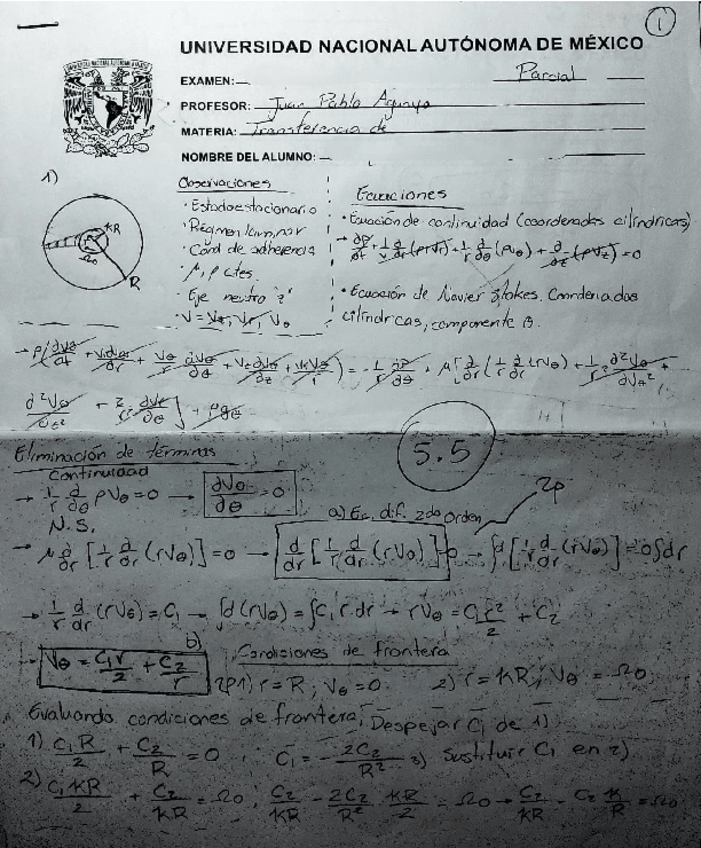 1
UNIVERSIDAD NACIONAL AUTÓNOMA DE MÉXICO
EXAMEN: Parcial
PROFESOR: Juan Pablo Aguayo
MATERIA: Transferencia de
NOMBRE DEL ALUMNO:
1)
KR
Ω0
R
Observaciones
· Estado estacionario
· Régimen laminar
· Cond de adherencia
· μ, ρ ctes.
· Eje neutro "z"
· V = Vz, Vr, Vθ
Ecuaciones
· Ecuación de continuidad (coordenadas cilíndricas)
→ ∂ρ/∂t + 1/r ∂/∂r (ρrVr) + 1/r ∂/∂θ (ρVθ) + ∂/∂z (ρVz) = 0
· Ecuación de Navier Stokes. Coordenadas
cilíndricas, componente θ.
→ ρ(∂Vθ/∂t + Vr∂Vθ/∂r + Vθ/r ∂Vθ/∂θ + Vz∂Vθ/∂z + VrVθ/r) = -1/r ∂P/∂θ + μ[∂/∂r (1/r ∂/∂r (rVθ)) + 1/r² ∂²Vθ/∂Vθ² +
∂²Vθ/∂z² + 2/r² ∂Vr/∂θ] + ρgθ
5.5
Eliminación de términos
Continuidad
→ 1/r ∂/∂θ ρVθ = 0 → ∂Vθ/∂θ = 0
N.S.
a) Ec. dif. 2do Orden
2p
→ μ ∂/∂r [1/r ∂/∂r (rVθ)] = 0 → d/dr [1/r d/dr (rVθ)] = 0 → ∫d [1/r d/dr (rVθ)] = 0∫dr
→ 1/r d/dr (rVθ) = C1 → ∫d(rVθ) = ∫C1 r dr → rVθ = C1r²/2 + C2
b)
→ Vθ = C1r/2 + C2/r
Condiciones de frontera
2p 1) r = R; Vθ = 0 2) r = KR; Vθ = Ω0
Evaluando condiciones de frontera, Despejar C1 de 1)
1) C1R/2 + C2/R = 0 ; C1 = -2C2/R² 3) Sustituir C1 en 2)
2) C1KR/2 + C2/KR = Ω0 ; C2/KR - 2C2/R² KR/2 = Ω0 → C2/KR - C2 K/R = Ω0